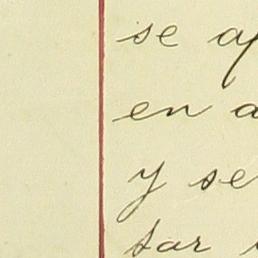 se
en a
y se
tar